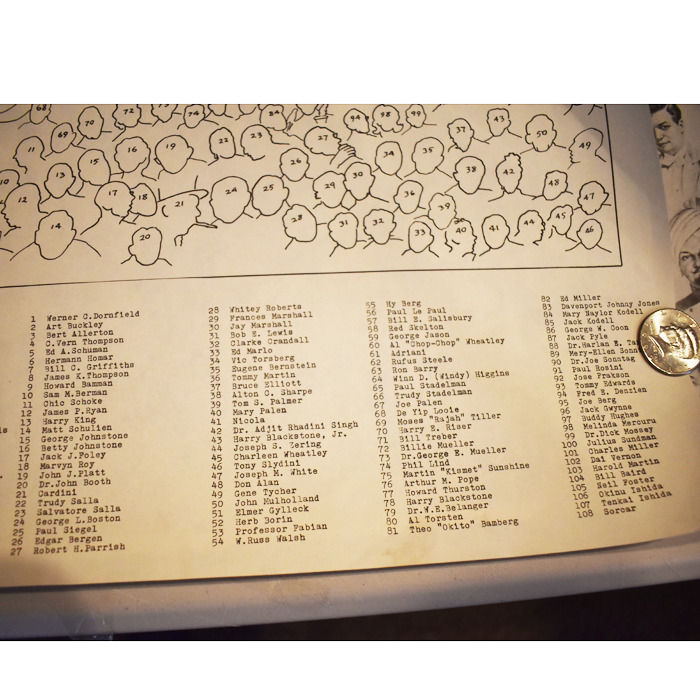 68 70 72 73 74 84 94 98 99
69 22 23 27 37 43 50
11 15 16 19 26 34 35 49
10 13 17 18 24 25 29 30 38 42 48 47
12 14 21 20 28 31 32 36 39 33 40 41 44 45 46
1 Werner C.Dornfield
2 Art Buckley
3 Bert Allerton
4 C.Vern Thompson
5 Ed A.Schuman
6 Hermann Homar
7 Bill C. Griffiths
8 James K.Thompson
9 Howard Bamman
10 Sam M.Berman
11 Chic Schoke
12 James P.Ryan
13 Harry King
14 Matt Schulien
15 George Johnstone
16 Betty Johnstone
17 Jack J.Foley
18 Marvyn Roy
19 John J.Platt
20 Dr.John Booth
21 Cardini
22 Trudy Salla
23 Salvatore Salla
24 George L.Boston
25 Paul Siegel
26 Edgar Bergen
27 Robert H.Parrish
28 Whitey Roberts
29 Frances Marshall
30 Jay Marshall
31 Bob E. Lewis
32 Clarke Crandall
33 Ed Marlo
34 Vic Torsberg
35 Eugene Bernstein
36 Tommy Martin
37 Bruce Elliott
38 Alton C. Sharpe
39 Tom S. Palmer
40 Mary Palen
41 Nicola
42 Dr. Adjit Rhadini Singh
43 Harry Blackstone, Jr.
44 Joseph S. Zering
45 Charleen Wheatley
46 Tony Slydini
47 Joseph M. White
48 Don Alan
49 Gene Tycher
50 John Mulholland
51 Elmer Gylleck
52 Herb Borin
53 Professor Fabian
54 W.Russ Walsh
55 Hy Berg
56 Paul Le Paul
57 Bill E. Salisbury
58 Red Skelton
59 George Jason
60 Al "Chop-Chop" Wheatley
61 Adriani
62 Rufus Steele
63 Ron Barry
64 Winn D. (Windy) Higgins
65 Paul Stadelman
66 Trudy Stadelman
67 Joe Palen
68 De Yip Looie
69 Moses "Rajah" Tiller
70 Harry E. Riser
71 Bill Treber
72 Billie Mueller
73 Dr.George E. Mueller
74 Phil Lind
75 Martin "Kismet" Sunshine
76 Arthur M. Pope
77 Howard Thurston
78 Harry Blackstone
79 Dr.W.E.Belanger
80 Al Torsten
81 Theo "Okito" Bamberg
82 Ed Miller
83 Davenport Johnny Jones
84 Mary Naylor Kodell
85 Jack Kodell
86 George W. Coon
87 Jack Pyle
88 Dr.Harlan E.
89 Mery-Ellen
90 Dr.Joe Sonntag
91 Paul Rosini
92 Jose Frakson
93 Tommy Edwards
94 Fred E. Denzien
95 Joe Berg
96 Jack Gwynne
97 Buddy Hughes
98 Melinda Mercuru
99 Dr.Dick Mossey
100 Julius Sundman
101 Charles Miller
102 Dai Vernon
103 Harold Martin
104 Bill Baird
105 Neil Foster
106 Okinu Ishida
107 Tenkai Ishida
108 Sorcar